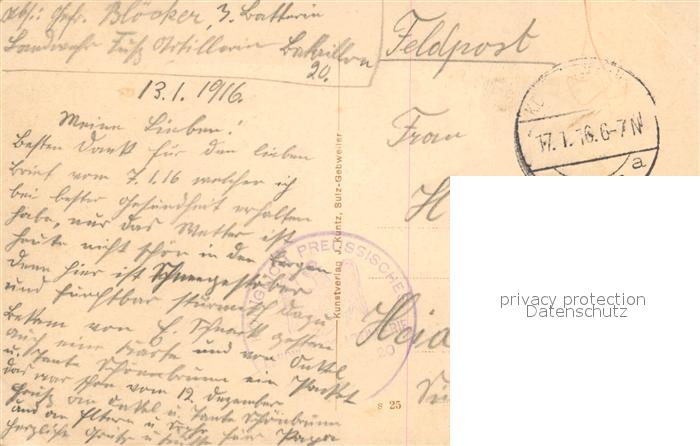 Abs: Gefr. Blöcker, 3. Batterie
Landwehr Fuß Artillerie Bataillon
20.
Feldpost
13.1.1916.
Meine Lieben!
Besten Dank für den lieben
Brief vom 7.1.16 welcher ich
bei bester Gesundheit erhalten
habe, nur das Wetter ist
heute nicht schön in den Bergen
denn hier ist Schneegestöber
und furchtbar stürmisch dazu
Bekam von gestern
auch eine Karte und von Onkel
u. Tante Schönbrunn ein Packet
das war schon vom 12. Dezember
Gruß an Onkel u. Tante Schönbrunn
und an Eltern u.
herzliche Grüße u. Euer Papa
Frau
H
Heid
17.1.16.6-7N
a
KÖNIGLICH PREUSSISCHE
20
Kunstverlag J. Kuntz, Sulz-Gebweiler
s 25
privacy protection
Datenschutz